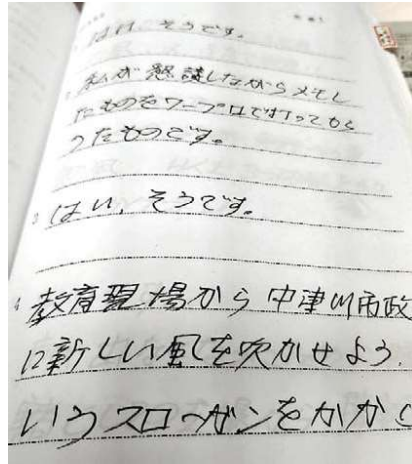 はい、そうです。
私が懇談しながらメモし
たものをワープロで打ってもら
ったものです。
3 はい、そうです。
4 教育現場から中津川市政
に新しい風を吹かせよう.
いうスローガンをかか